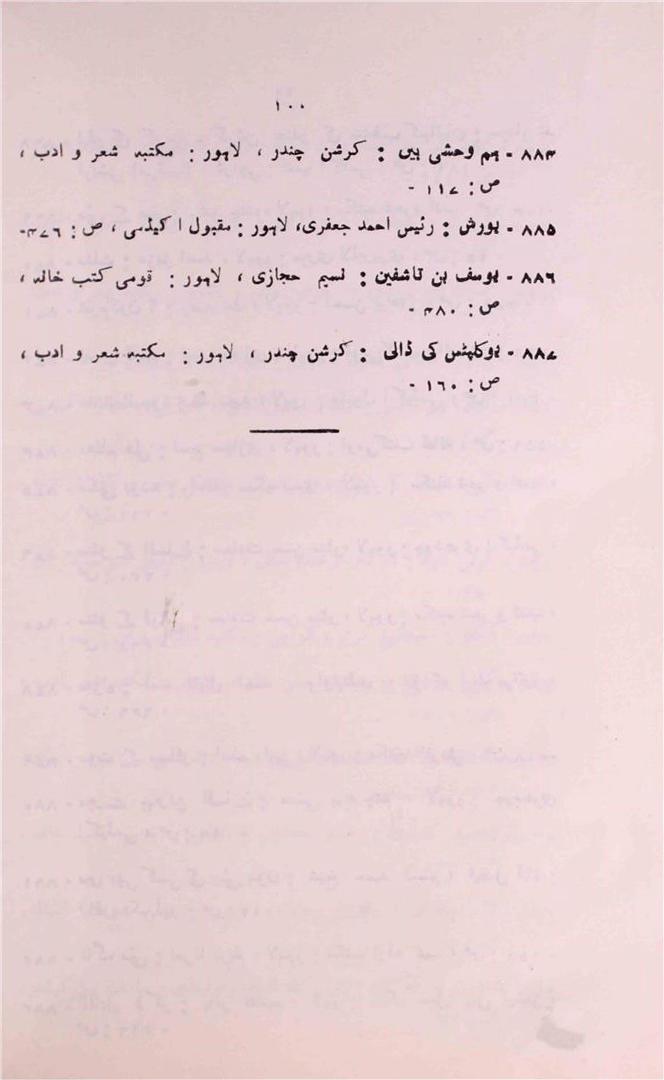 ۱۰۰
۸۸۴ - ہم وحشی ہیں : کرشن چندر ، لاہور : مکتبہ شعر و ادب ،
ص : ۱۱۷ -
۸۸۵ - یورش : رئیس احمد جعفری، لاہور : مقبول اکیڈمی ، ص : ۴۷۶-
۸۸۶ - یوسف بن تاشفین : نسیم حجازی ، لاہور : قومی کتب خانہ ،
ص : ۴۸۰ -
۸۸۷ - یوکلپٹس کی ڈالی : کرشن چندر ، لاہور : مکتبہ شعر و ادب ،
ص : ۱۶۰ -